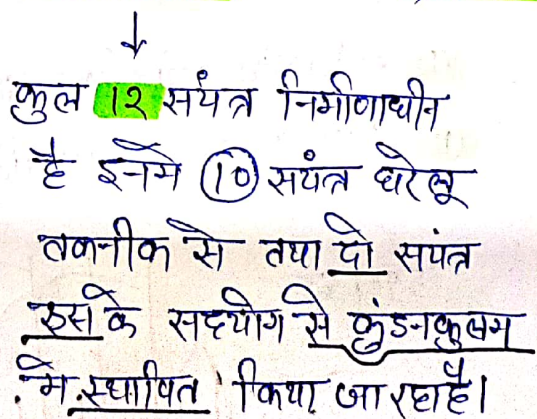 कुल 12 सयंत्र निर्माणाधीन
है इनमे 10 सयंत्र घरेलू
तकनीक से तथा दो सयंत्र
रूस के सहयोग से कुंडनकुलम
मे स्थापित किया जा रहा है।